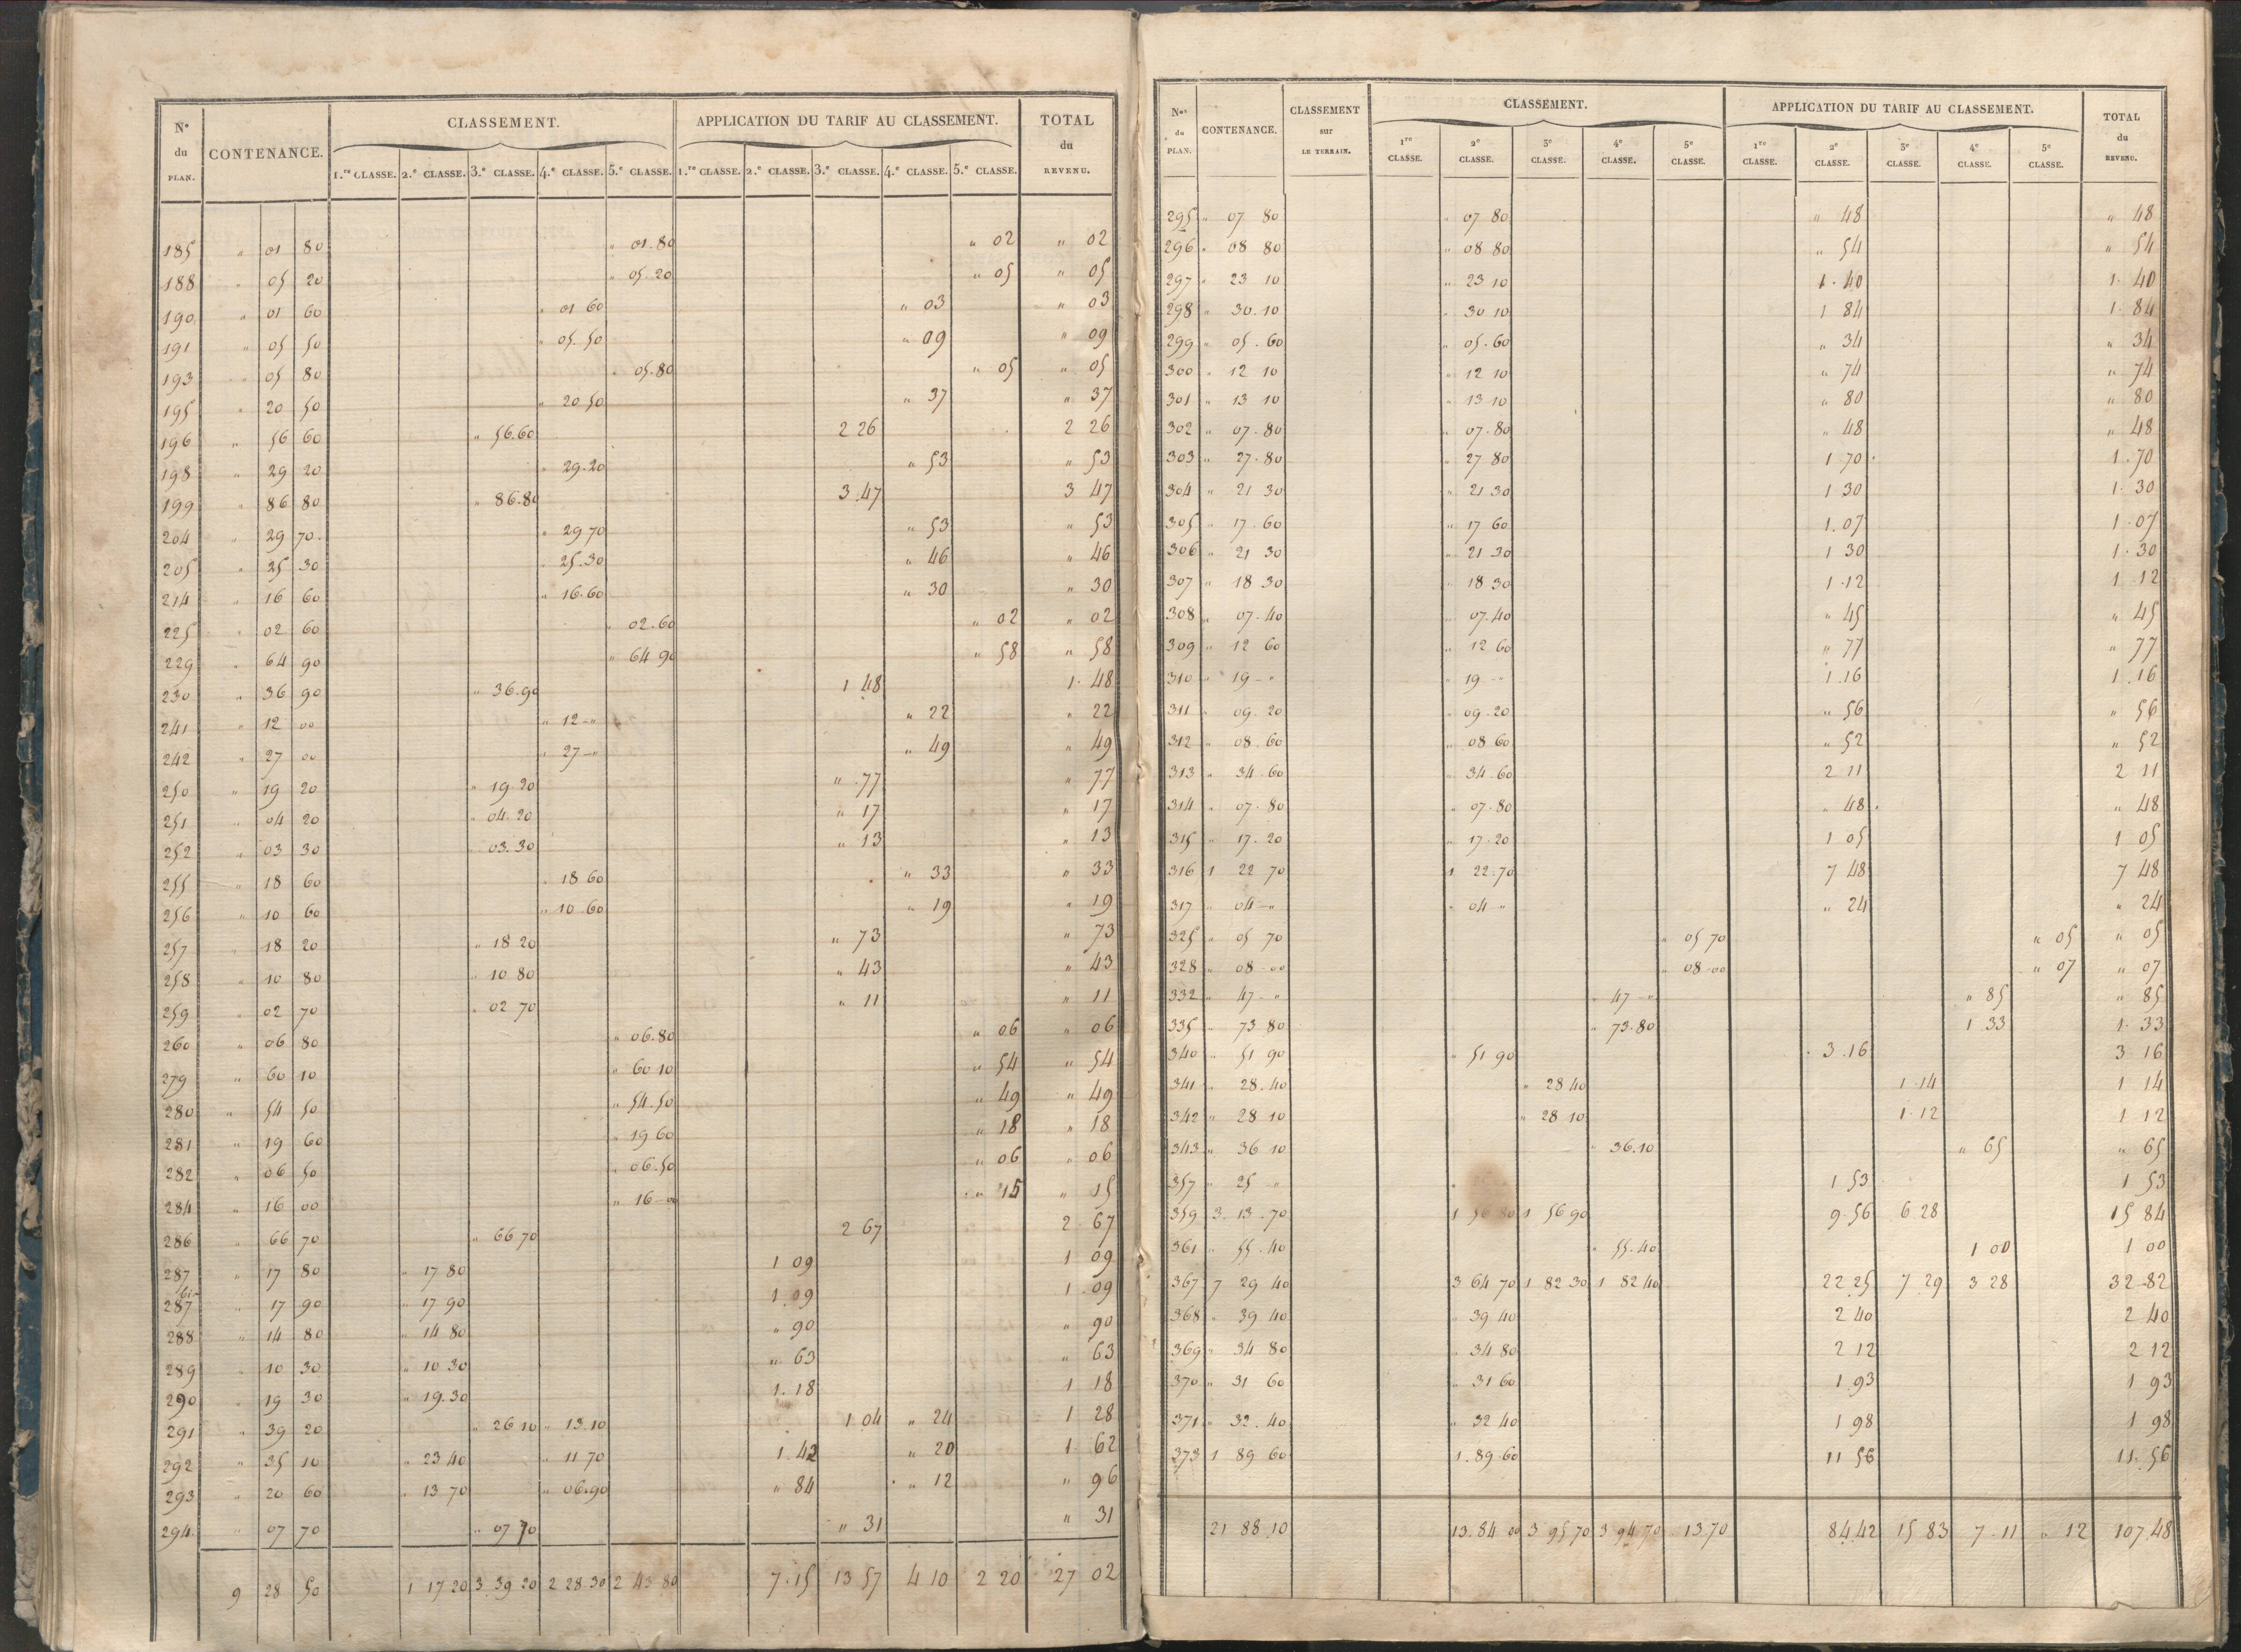 N° du PLAN. CONTENANCE. CLASSEMENT. APPLICATION DU TARIF AU CLASSEMENT. TOTAL du REVENU.
1.re CLASSE. 2.e CLASSE. 3.e CLASSE. 4.e CLASSE. 5.e CLASSE. 1.re CLASSE. 2.e CLASSE. 3.e CLASSE. 4.e CLASSE. 5.e CLASSE.
185 " 01 80 " 01.80 " 02 " 02
188 " 05 20 " 05.20 " 05 " 05
190 " 01 60 " 01 60 " 03 " 03
191 " 05 50 " 05.50 " 09 " 09
193 " 05 80 " 05.80 " 05 " 05
195 " 20 50 " 20.50 " 37 " 37
196 " 56 60 " 56.60 2 26 2 26
198 " 29 20 " 29.20 " 53 " 53
199 " 86 80 " 86.80 3.47 3 47
204 " 29 70 " 29 70 " 53 " 53
205 " 25 30 " 25.30 " 46 " 46
214 " 16 60 " 16.60 " 30 " 30
225 " 02 60 " 02.60 " 02 " 02
229 " 64 90 " 64 90 " 58 " 58
230 " 36 90 " 36.90 1 48 1. 48
241 " 12 00 " 12 - " " 22 " 22
242 " 27 00 " 27 - " " 49 " 49
250 " 19 20 " 19 20 " 77 " 77
251 " 04 20 " 04.20 " 17 " 17
252 " 03 30 " 03.30 " 13 " 13
255 " 18 60 " 18 60 " 33 " 33
256 " 10 60 " 10.60 " 19 " 19
257 " 18 20 " 18 20 " 73 " 73
258 " 10 80 " 10 80 " 43 " 43
259 " 02 70 " 02 70 " 11 " 11
260 " 06 80 " 06.80 " 06 " 06
279 " 60 10 " 60 10 " 54 " 54
280 " 54 50 " 54.50 " 49 " 49
281 " 19 60 " 19 60 " 18 " 18
282 " 06 50 " 06.50 " 06 " 06
284 " 16 00 " 16 - 00 " 15 " 15
286 " 66 70 " 66.70 2 67 2. 67
287 " 17 80 " 17 80 1 09 1 09
287 bis " 17 90 " 17 90 1.09 1.09
288 " 14 80 " 14 80 " 90 " 90
289 " 10 30 " 10 30 " 63 " 63
290 " 19 30 " 19.30 1.18 1 18
291 " 39 20 " 26 10 " 13.10 1 04 " 24 1 28
292 " 35 10 " 23 40 " 11 70 1.42 " 20 1. 62
293 " 20 60 " 13 70 " 06.90 " 84 " 12 " 96
294 " 07 70 " 07 70 " 31 " 31
9 28 50 1 17 20 3 39 20 2 28.30 2 43 80 7.15 13 57 4 10 2 20 27 02
Nos du PLAN. CONTENANCE. CLASSEMENT sur LE TERRAIN. CLASSEMENT. APPLICATION DU TARIF AU CLASSEMENT. TOTAL du REVENU.
1re CLASSE. 2e CLASSE. 3e CLASSE. 4e CLASSE. 5e CLASSE. 1re CLASSE. 2e CLASSE. 3e CLASSE. 4e CLASSE. 5e CLASSE.
295 " 07 80 " 07 80 " 48 " 48
296 " 08 80 " 08 80 " 54 " 54
297 " 23 10 " 23 10 1.40 1. 40
298 " 30.10 " 30 10 1 84 1. 84
299 " 05.60 " 05.60 " 34 " 34
300 " 12 10 " 12 10 " 74 " 74
301 " 13 10 " 13 10 " 80 " 80
302 " 07.80 " 07.80 " 48 " 48
303 " 27.80 " 27 80 1 70 1.70
304 " 21 30 " 21 30 1 30 1. 30
305 " 17.60 " 17 60 1.07 1.07
306 " 21 30 " 21 30 1 30 1.30
307 " 18 30 " 18 30 1.12 1 12
308 " 07.40 " 07.40 " 45 " 45
309 " 12 60 " 12 60 " 77 " 77
310 " 19 - " " 19 - " 1.16 1.16
311 " 09.20 " 09.20 " 56 " 56
312 " 08.60 " 08 60 " 52 " 52
313 " 34.60 " 34.60 2 11 2 11
314 " 07.80 " 07.80 " 48 " 48
315 " 17.20 " 17.20 1 05 1 05
316 1 22 70 1 22.70 7 48 7 48
317 " 04 - " " 04 " " 24 " 24
325 " 05 70 " 05 70 " 05 " 05
328 " 08 - 00 " 08 - 00 " 07 " 07
332 " 47 - " " 47 - " " 85 " 85
335 " 73 80 " 73.80 1 33 1. 33
340 " 51 90 " 51 90 3.16 3 16
341 " 28.40 " 28 40 1.14 1 14
342 " 28 10 " 28 10 1.12 1 12
343 " 36 10 " 36.10 " 65 " 65
357 " 25 - " 1 53 1 53
359 3.13.70 1 56 80 1 56 90 9.56 6 28 15 84
361 " 55.40 " 55.40 1 00 1 00
367 7 29 40 3 64 70 1 82 30 1 82 40 22 25 7 29 3 28 32-82
368 " 39 40 " 39 40 2 40 2 40
369 " 34 80 " 34 80 2 12 2 12
370 " 31 60 " 31 60 1 93 1 93
371 " 32.40 " 32 40 1 98 1 98
373 1 89 60 1.89 60 11 56 11.56
21 88 10 13.84 00 3 95 70 3 94 70 13.70 84.42 15 83 7.11 " 12 107.48